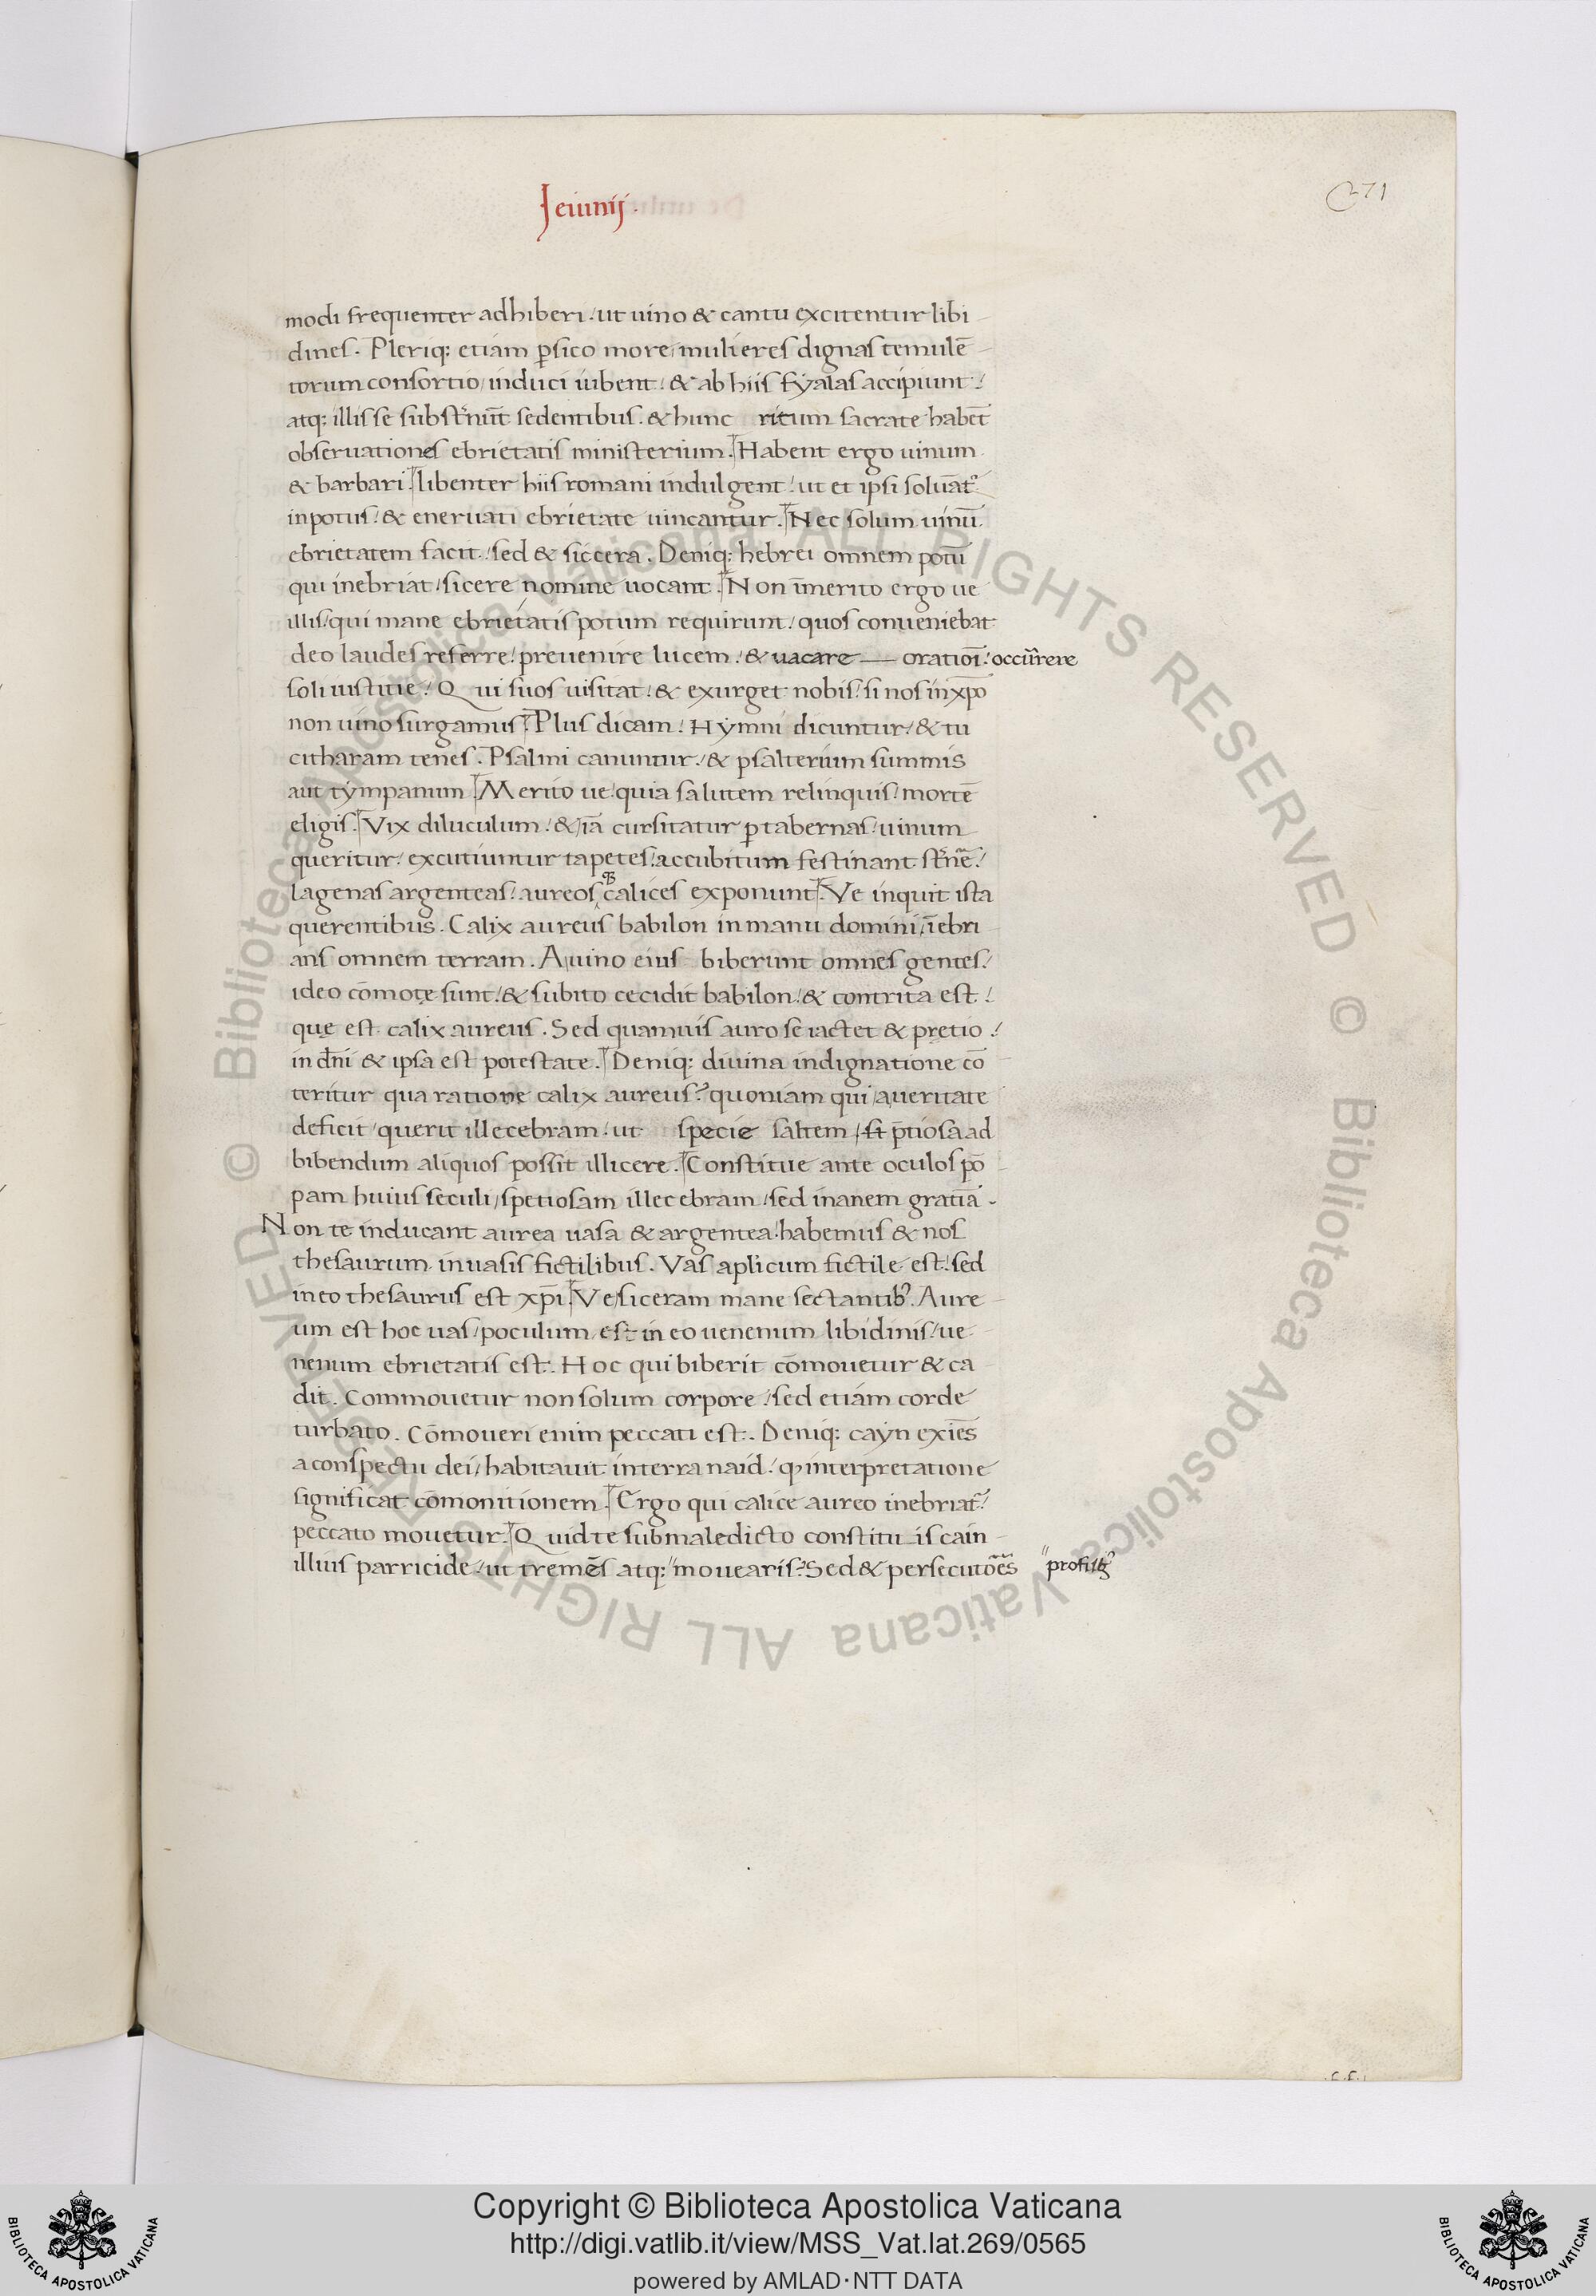 Ieiunij.
271
modi frequenter adhiberi / ut uino & cantu excitentur libi
dines. Pleriq: etiam ꝑsico more / mulieres dignas temulē
torum consortio / induci iubent / & ab hiis fyalas accipiunt /
atq: illis se subst̄nūt sedentibus. & hunc ritum sacrate habēt
obseruationes ebrietatis ministerium. Habent ergo uinum
& barbari. libenter hiis romani indulgent / ut et ipsi soluāt᷑
in potus / & eneruati ebrietate uincantur. Nec solum uinū
ebrietatem facit / sed & siccera. Deniq: hebrei omnem potū
qui inebriat / sicere nomine uocant. Non īmerito ergo ue
illis / qui mane ebrietatis potum requirunt / quos conueniebat
deo laudes referre / preuenire lucem / & uacare — orationī / occūrrere
soli iustitie / Qui suos uisitat / & exurget nobis / si nos in xp̄o
non uino surgamus. Plus dicam / Hymni dicuntur / & tu
citharam tenes. Psalmi canuntur / & psalterium summis
aut tympanum. Merito ue / quia salutem relinquis / mortē
eligis. Vix diluculum / & iā cursitatur ꝑ tabernas / uinum
queritur / excutiuntur tapetes / accubitum festinant st̄nē /
lagenas argenteas / aureos qȝ calices exponunt. Ve inquit ista
querentibus. Calix aureus babilon in manu domini / īebri
ans omnem terram. A uino eius biberunt omnes gentes /
ideo cōmotę sunt / & subito cecidit babilon / & contrita est /
que est calix aureus. Sed quamuis auro se iactet & pretio /
in dn̄i & ipsa est potestate. Deniq: diuina indignatione cō
teritur qua ratione calix aureus? quoniam qui a ueritate
deficit / querit illecebram / ut specie saltem / p̄tiosa ad
bibendum aliquos possit illicere. Constitue ante oculos pō
pam huius seculi / spetiosam illecebram / sed inanem gratiā.
Non te inducant aurea uasa & argentea / habemus & nos
thesaurum in uasis fictilibus. Vas aplicum fictile est / sed
in eo thesaurus est xp̄i. Ve / siceram mane sectantib᷒. Aure
um est hoc uas / poculum / est in eo uenenum libidinis / ue
nenum ebrietatis est. Hoc qui biberit cōmouetur & ca
dit. Commouetur non solum corpore / sed etiam corde
turbato. Cōmoueri enim peccati est. Deniq: cayn exiēs
a conspectu dei / habitauit in terra naid / qͥ interpretatione
significat cōmonitionem. Ergo qui calice aureo inebriat᷑ /
peccato mouetur. Quid te sub maledicto constitu is cain
illius parricide / ut tremēs atq: " mouearis? Sed & persecutōēs
Copyright © Biblioteca Apostolica Vaticana
http://digi.vatlib.it/view/MSS_Vat.lat.269/0565
powered by AMLAD·NTT DATA
BIBLIOTECA APOSTOLICA VATICANA
BIBLIOTECA APOSTOLICA VATICANA
© Biblioteca Apostolica Vaticana ALL RIGHTS RESERVED © Biblioteca Apostolica Vaticana ALL RIGHTS RESERVED